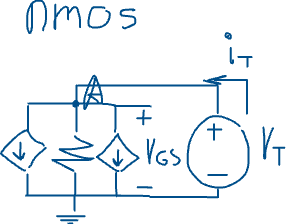 nmos
iT
A
+
+
VGS
VT
−
−